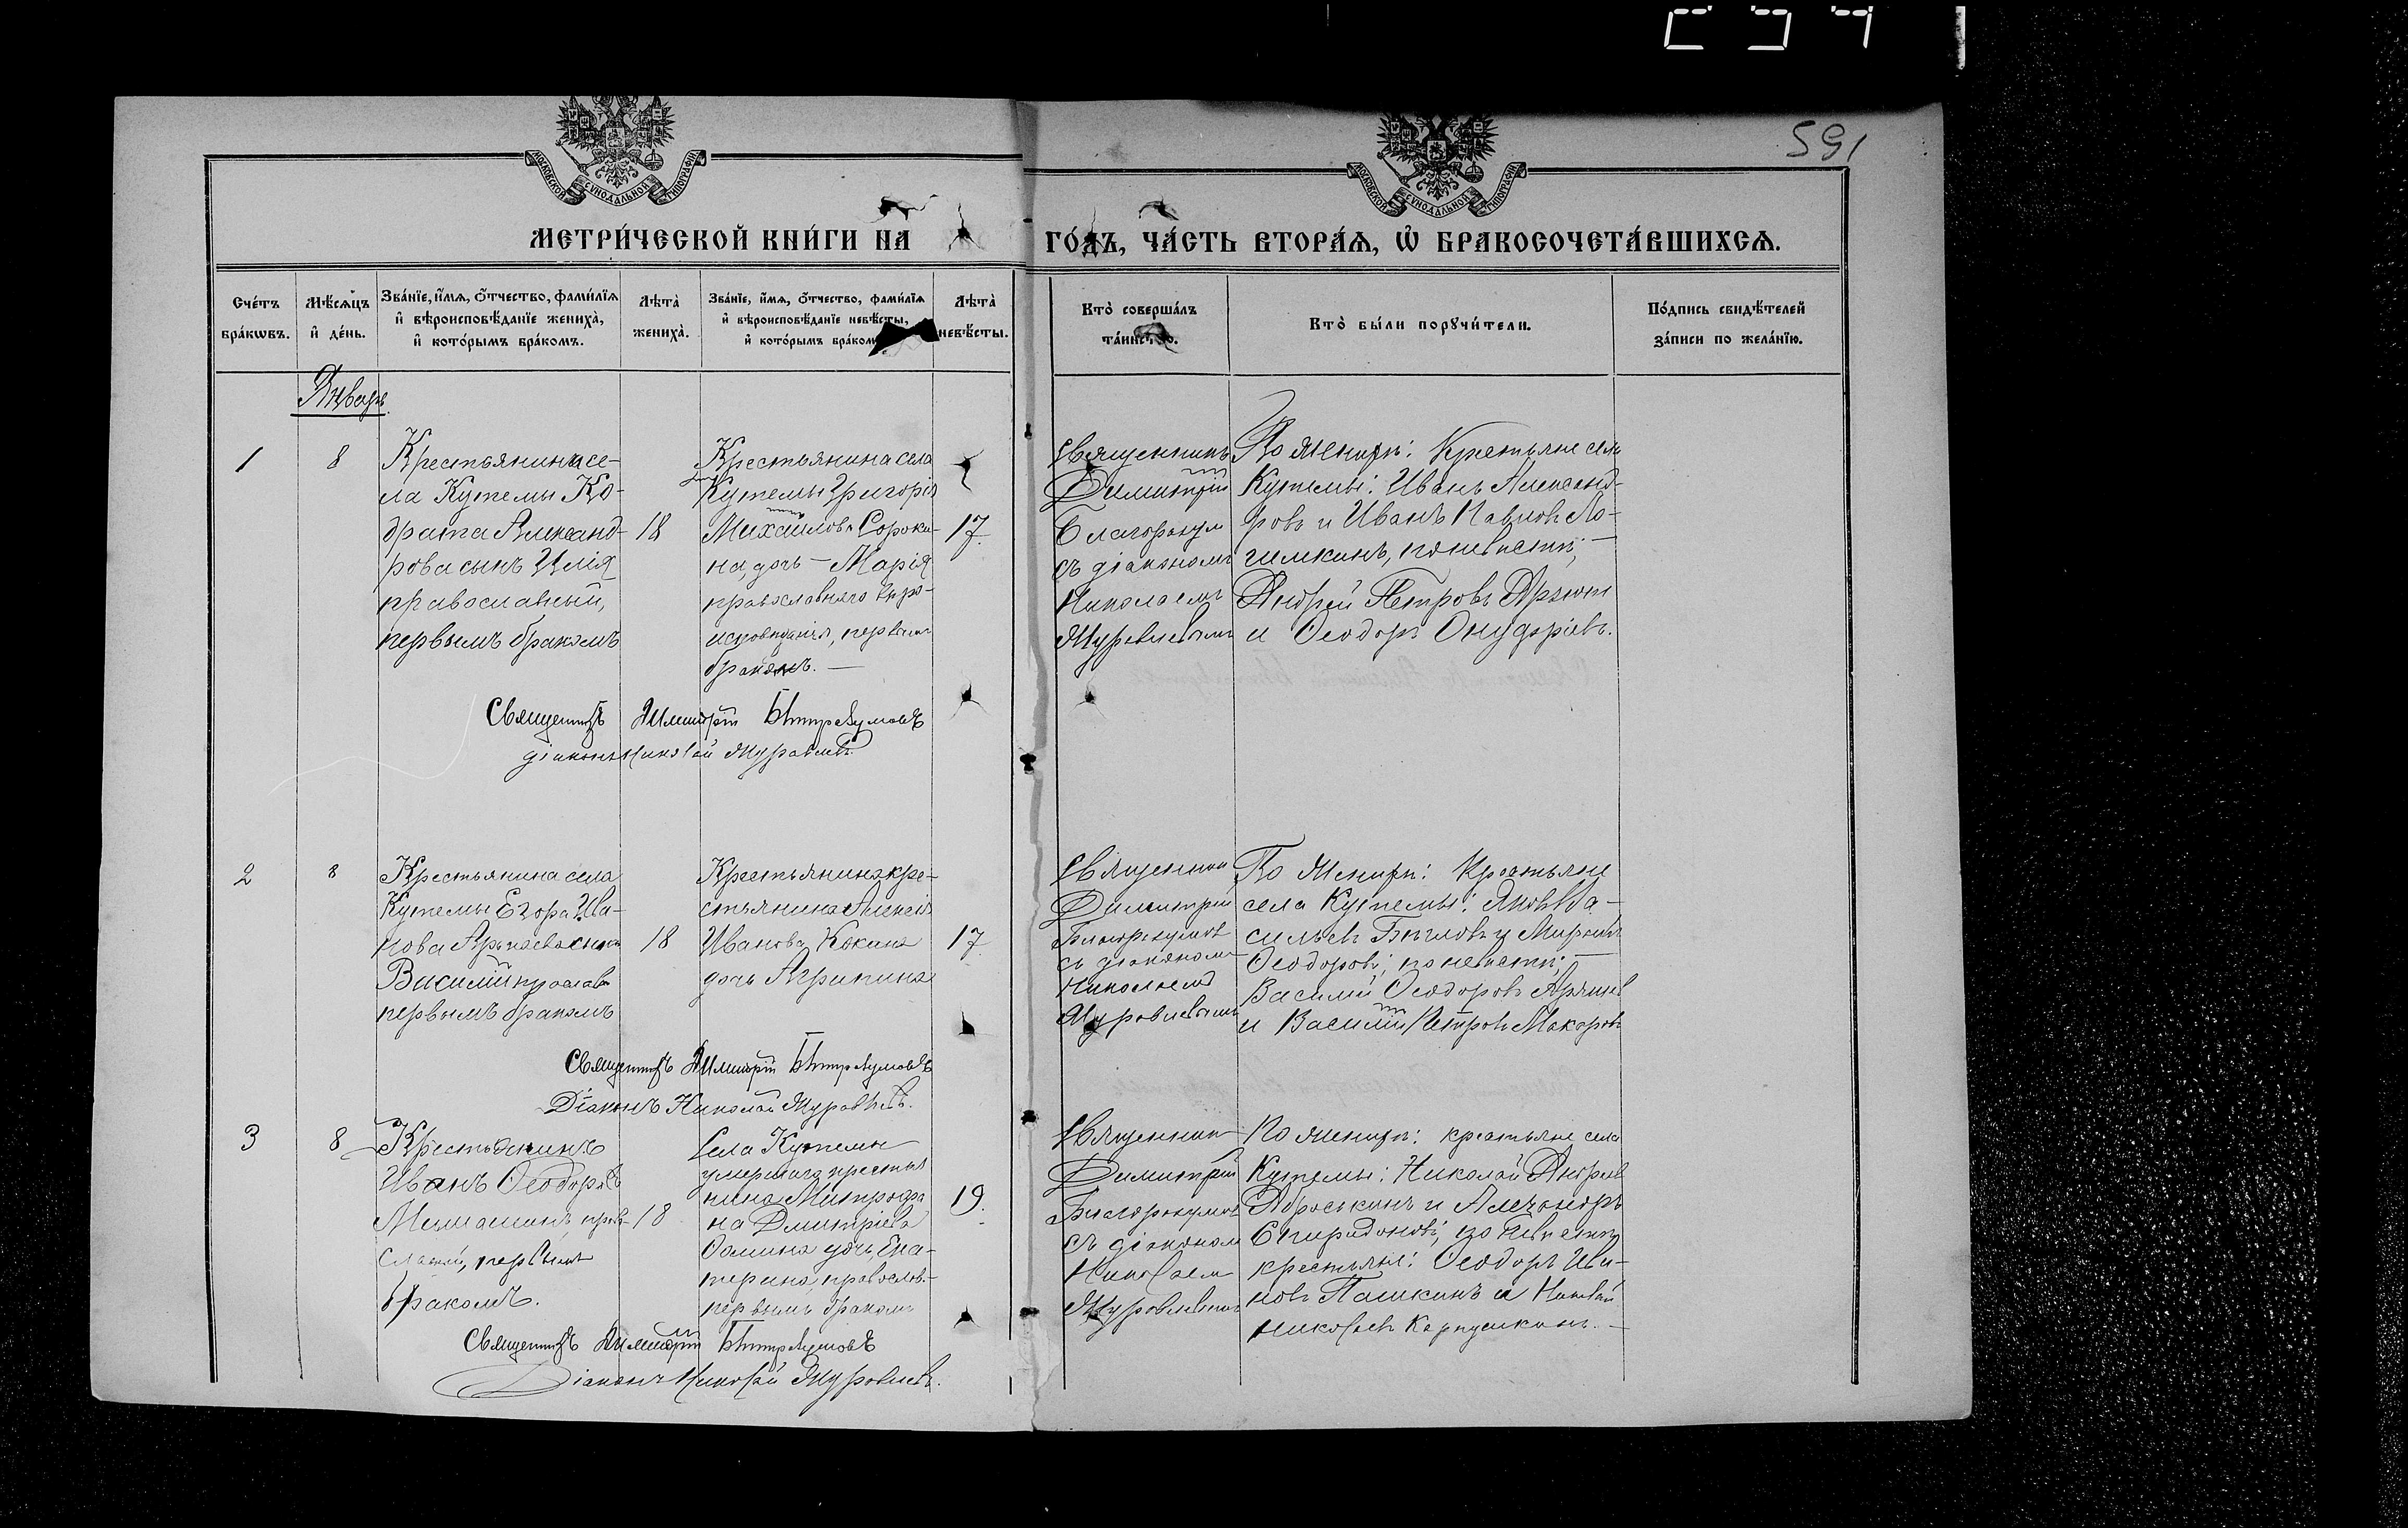 591
МОСКОВСКОЙ СѴНОДАЛЬНОЙ ТИПОГРАФІИ
МОСКОВСКОЙ СѴНОДАЛЬНОЙ ТИПОГРАФІИ
МЕТРИ́ЧЕСКОЙ КНИ́ГИ НА
ГО́ДЪ, ЧА́СТЬ ВТОРА́Ѧ, Ѡ҆ БРАКОСОЧЕТА́ВШИХСѦ.
Сче́тъ
бра́кѡвъ.
Мѣ́сѧцъ
и҆ де́нь.
Зва́нїе, и҆́мѧ, ѻ҆́тчество, фами́лїѧ
и҆ вѣроисповѣ́данїе жениха̀,
и҆ кото́рымъ бра́комъ.
Лѣта̀
жениха̀.
Зва́нїе, и҆́мѧ, ѻ҆́тчество, фами́лїѧ
и҆ вѣроисповѣ́данїе невѣ́сты,
и҆ кото́рымъ бра́ком
Лѣта̀
невѣ́сты.
Кто̀ соверша́лъ
та́инство.
Кто̀ бы́ли порꙋчи́тели.
По́дпись свидѣ́телей
за́писи по жела́нїю.
Январь
1
8
Крестьянина се-
ла Кутемы Ко-
драта Александ-
рова сынъ Илія
православный,
первымъ бракомъ
18
Крестьянина села
Кутемы Григорія
Михайлова Сороки-
на, дочь - Марія
православнаго вѣро-
исповѣданія, первымъ
бракомъ. -
17.
Священникъ
Димитрій
Благоразум
съ діакономъ
Николаемъ
Журавлевымъ
По женихѣ: Крестьяне села
Кутемы: Иванъ Александ-
ровъ и Иванъ Павловъ
по невѣстѣ; -
Андрей Петровъ
и Ѳеодоръ
Священникъ Димитрій
діаконъ Николай Журавлевъ
2
8
Крестьянина села
Кутемы Егора Ива-
нова сынъ
Василій православ
первымъ бракомъ
18
Крестьянина кре-
стьянина Алексія
Иванова Кокина
дочь Агрипина
17
Священник
Димитрій
Благоразумов
съ діакономъ
Николаемъ
Журавлевымъ
По женихѣ: Крестьяне
села Кутемы: Яковъ Ва-
сильевъ и
Ѳеодоровъ; по невѣстѣ; -
Василій Ѳеодоровъ
и Василій Петровъ Макаровъ
Священникъ Димитрій
Діаконъ Николай Журавлевъ.
3
8
Крестьянинъ
Иванъ Ѳеодоровъ
право-
славный, первымъ
бракомъ.
18
Села Кутемы
умершаго крестья
нина Митрофа
на Димитріева
Ѳомина дочь Ека-
терина, православ.
первымъ бракомъ
19.
Священник
Димитрій
Благоразумов
съ діакономъ
Николаем
Журавлевымъ
По женихѣ: крестьяне села
Кутемы: Николай Андреев
Аброськинъ и Александръ
Спиридоновъ; по невѣстѣ
крестьяне: Ѳеодоръ Ива-
новъ Пашкинъ и Николай
Николаевъ Карпушкинъ. -
Священникъ Димитрій
Діаконъ Николай Журавлевъ.